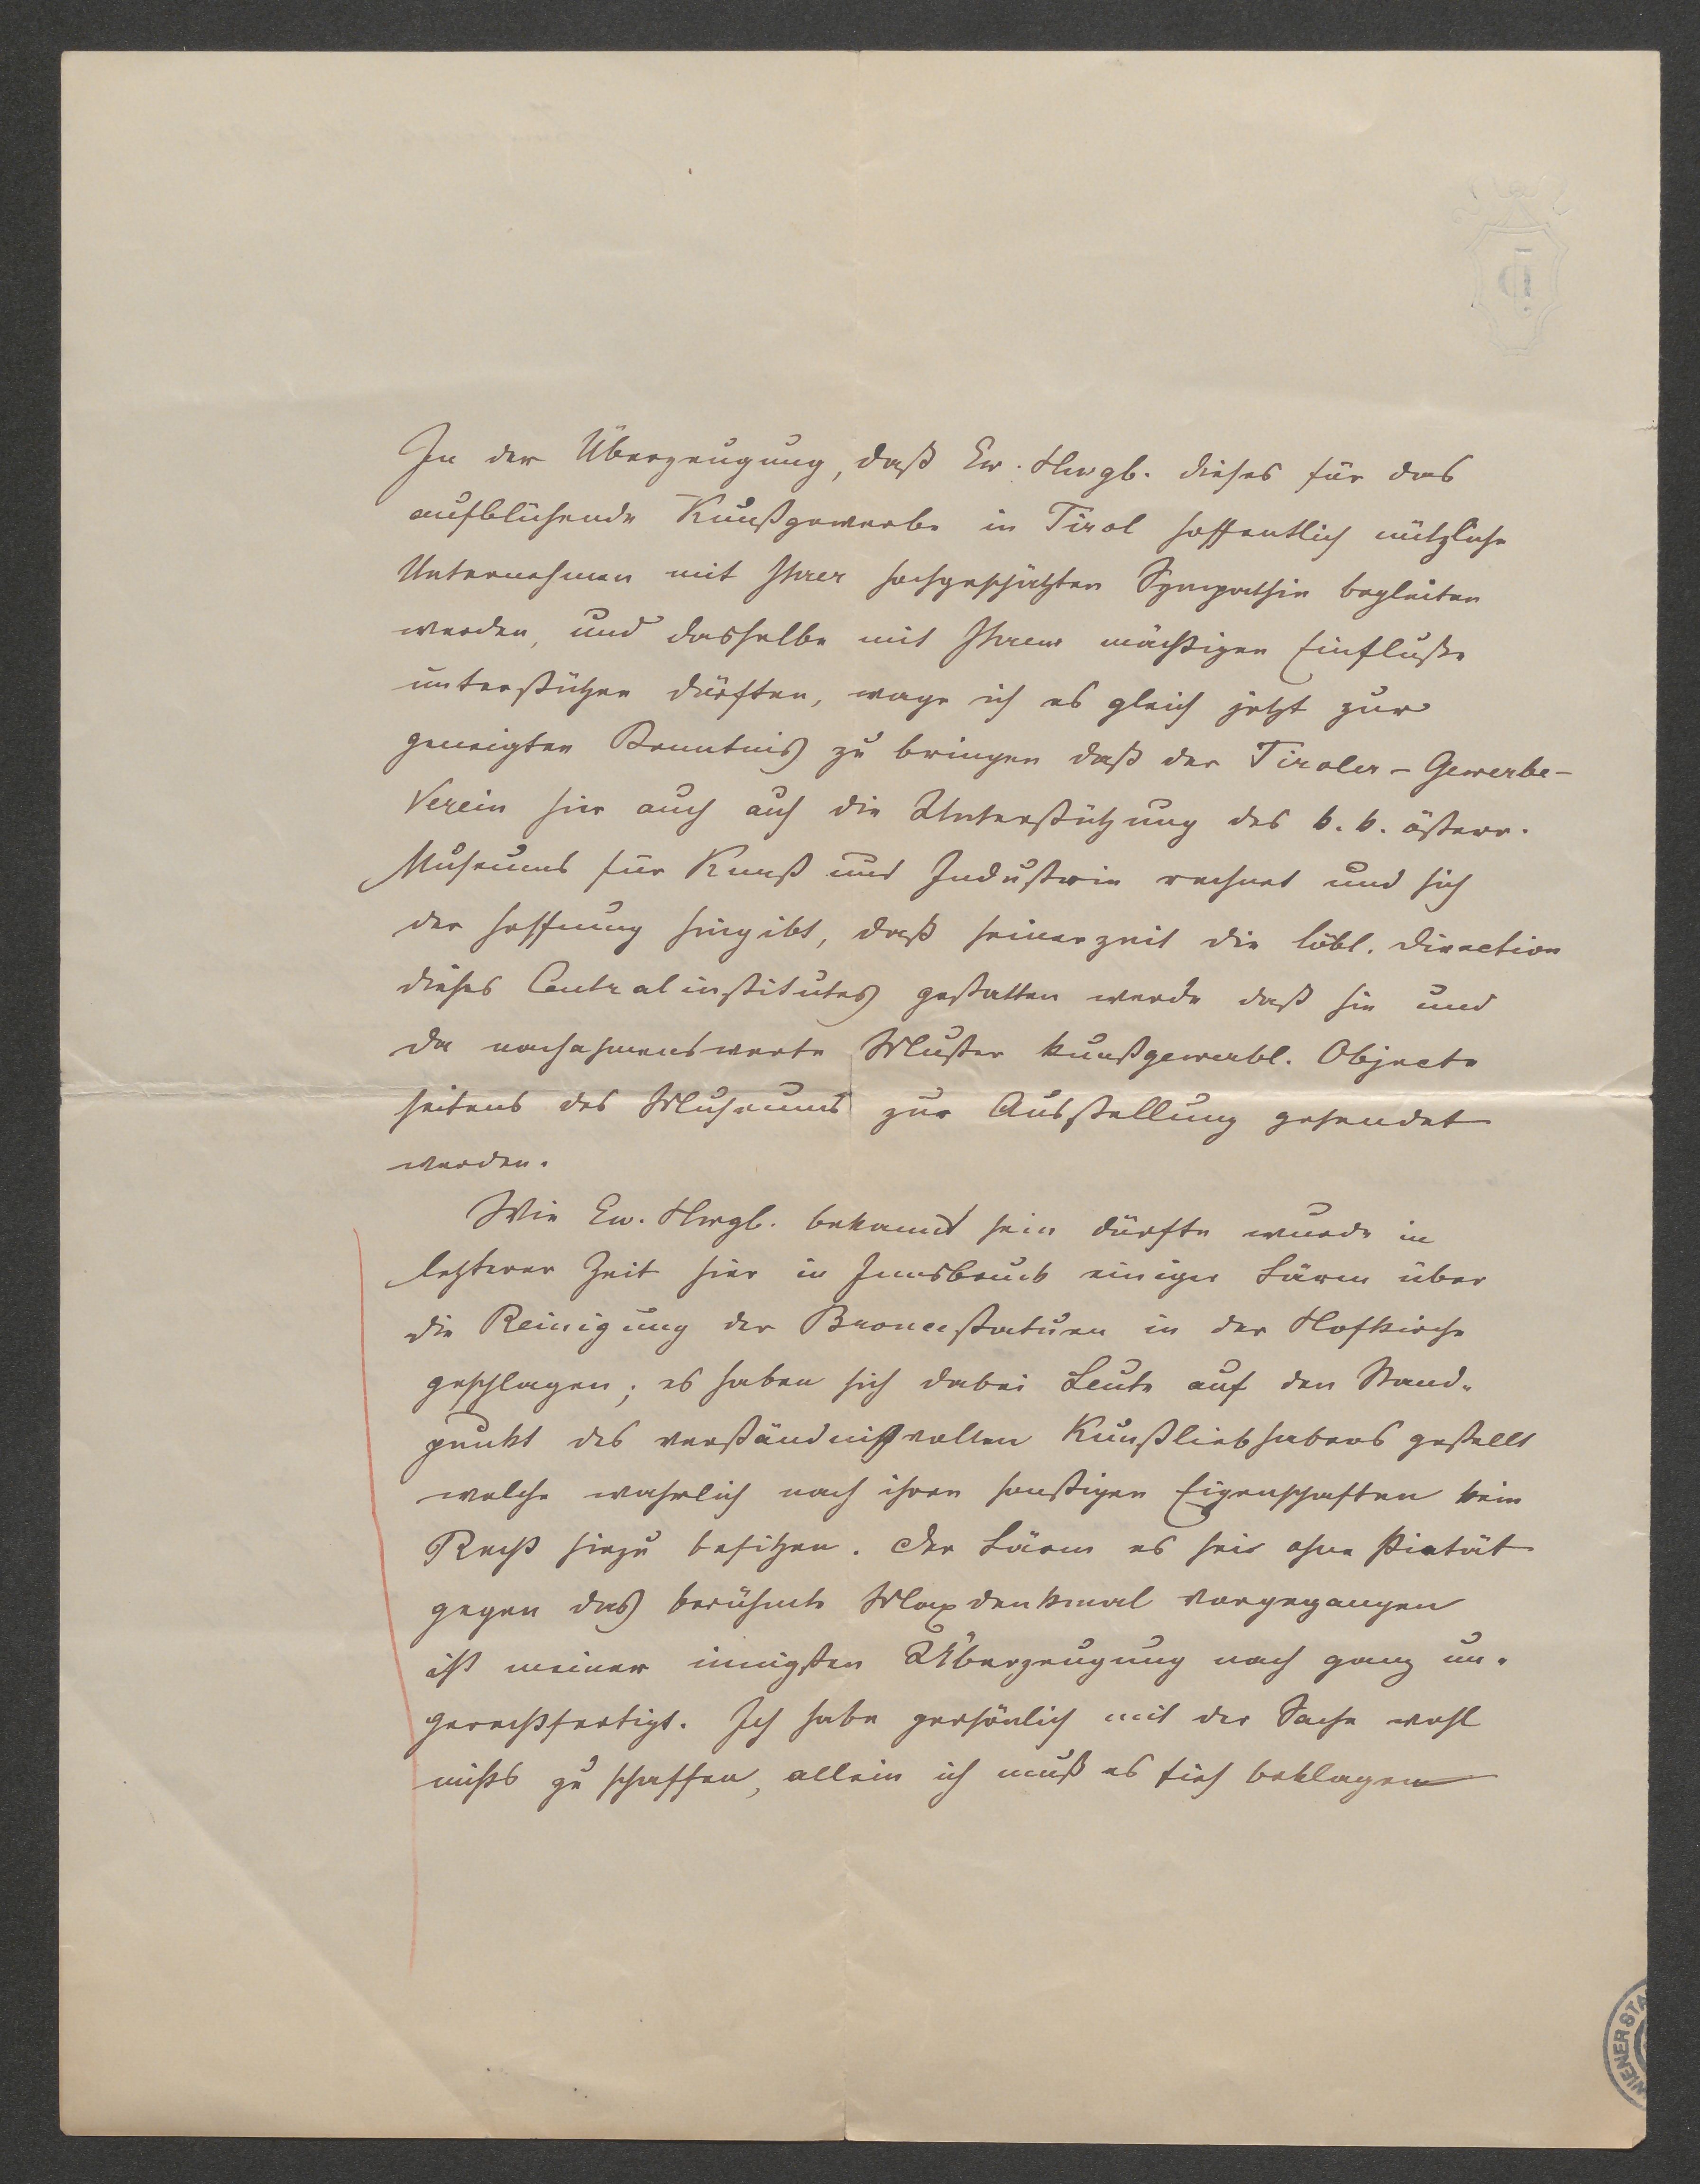 In der Überzeugung, daß Ew. Hwgb. dieses für das
aufblühende Kunstgewerbe in Tirol hoffentlich nützliche
Unternehmen mit Ihrer hochgeschätzten Sympathie begleiten
werden, und dasselbe mit Ihrem mächtigen Einfluße
unterstützen dürften, wage ich es gleich jetzt zur
geneigten Kenntnis zu bringen daß der Tiroler-Gewerbe-
Verein hier auch auf die Unterstützung des k. k. österr.
Museums für Kunst und Industrie rechnet und sich
der Hoffnung hingibt, daß seinerzeit die löbl. Direction
dieses Centralinstitutes gestatten werde daß hie und
da nachahmenswerte Muster kunstgewerbl. Objecte
seitens des Museums zur Ausstellung gesendet
werden.
Wie Ew. Hwgb. bekannt sein dürfte wurde in
letzterer Zeit hier in Innsbruck einiger Lärm über
die Reinigung der Broncestatuen in der Hofkirche
geschlagen; es haben sich dabei Leute auf den Stand-
punkt des verständnißvollen Kunstliebhabers gestellt
welche wahrlich nach ihren sonstigen Eigenschaften kein
Recht hiezu besitzen. Der Lärm es sei ohne Pietät
gegen das berühmte Maxdenkmal vorgegangen
ist meiner innigsten Überzeugung nach ganz un-
gerechtfertigt. Ich habe persönlich mit der Sache wohl
nichts zu schaffen, allein ich muß es tief beklagen
WIENER STA